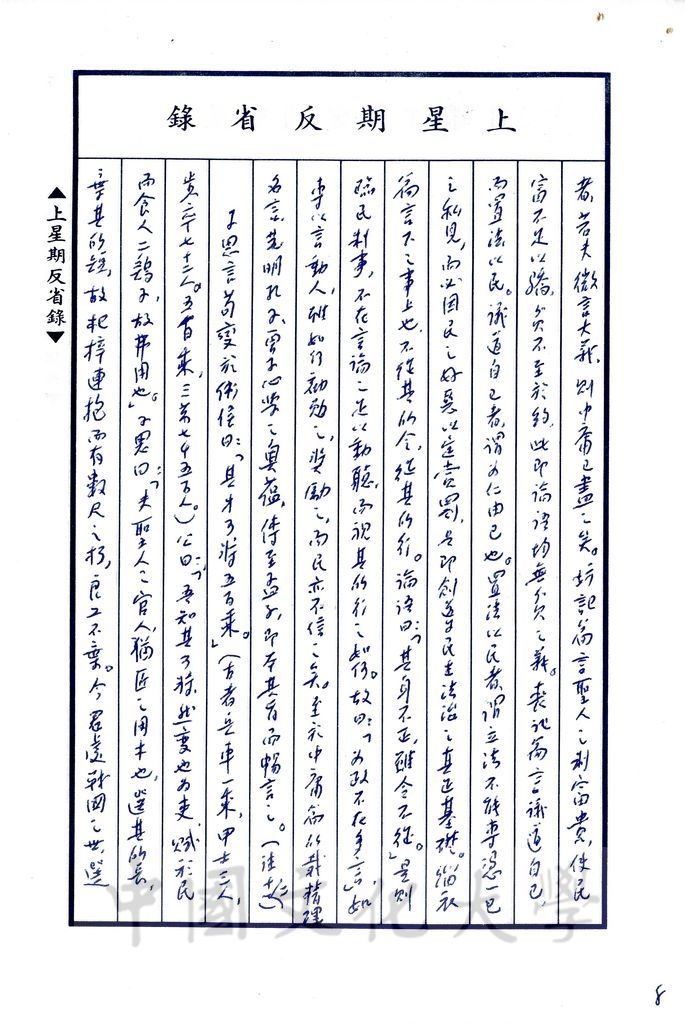 上星期反省錄
者，若夫微言大義，則中庸已盡之矣。坊記篇言聖人之制富貴，使民
富不足以驕，貧不至於約，此即論語均無貧之義。表記篇言議道自己，
而置法以民。議道自己者，謂為仁由己也。置法以民者，謂立法不能專憑一己
之私見，而必因民之好惡以定賞罰，是即創造民主法治之真正基礎。緇衣
篇言下之事上也，不從其所令，從其所行。論語曰：「其身不正，雖令不從。」是則
臨民制事，不在言論之足以動聽，而視其所行之如何。故曰：「為政不在多言」，如
專以言動人，雖如何勸勉之，獎勵之，而民亦不信之矣。至於中庸篇所載精理
名言，莫明孔子、曾子心學之奧蘊，傳至孟子，即本其旨而暢言之。（註廿）
子思言苟變於衛侯曰：「其才可將五百乘。」（古者兵車一乘，甲士三人，
步卒七十二人。五百乘，三萬七千五百人。）公曰：「吾知其可將，然變也為吏，賦於民
而食人二雞子，故弗用也。」子思曰：「夫聖人之官人，猶匠之用木也，選其所長，
棄其所短，故杞梓連抱而有數尺之朽，良工不棄。今君處戰國之世，選
▲上星期反省錄▼
中國文化大學
8